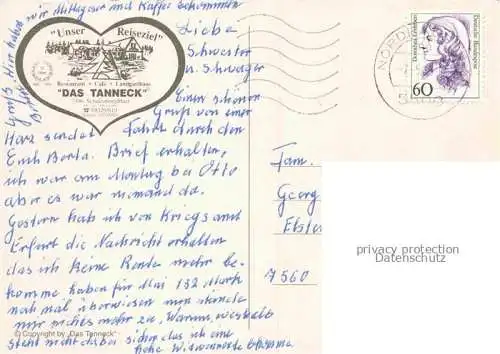 wir Mittagessen mit Kaffee
"Unser Reiseziel"
Restaurant • Café • Landgasthaus
"DAS TANNECK"
Liebe
Schwester
u. Schwager
Einen schönen
Gruß von einer
Harz sendet Fahrt durch den
Euch Borta. Brief erhalten,
ich war am Montag bei Otto
aber es war niemand da.
Gestern hab ich von Kriegs amt
Erfurt die Nachricht erhalten
das ich keine Rente mehr be-
komme haben für Mai 132 Mark
noch mal überwiesen nun
mir nichts mehr zu. Warum, weshalb
steht nicht dabei sicher das ich eine
hohe Witwenrente
© Copyright by „Das Tanneck"
NORDH
Deutsche Bundespost
Dorothea Erxleben
60
Fam.
Georg
Elster
7560
privacy protection
Datenschutz